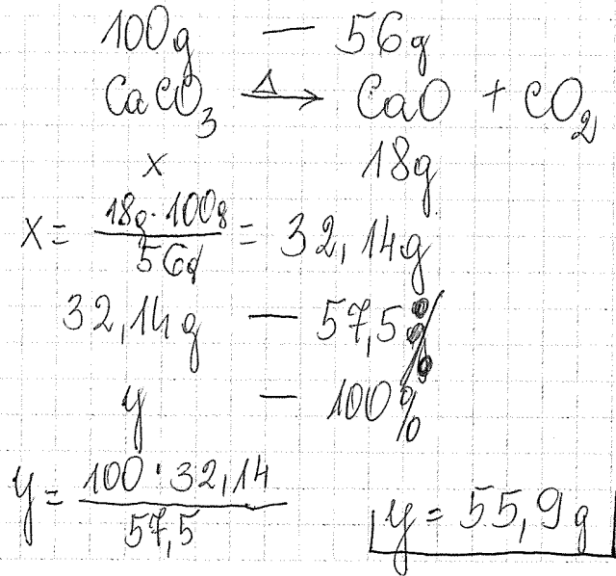 100g — 56g
CaCO₃ —Δ→ CaO + CO₂
x 18g
x = 18g · 100g / 56g = 32,14g
32,14g — 57,5%
y — 100%
y = 100 · 32,14 / 57,5
y = 55,9g